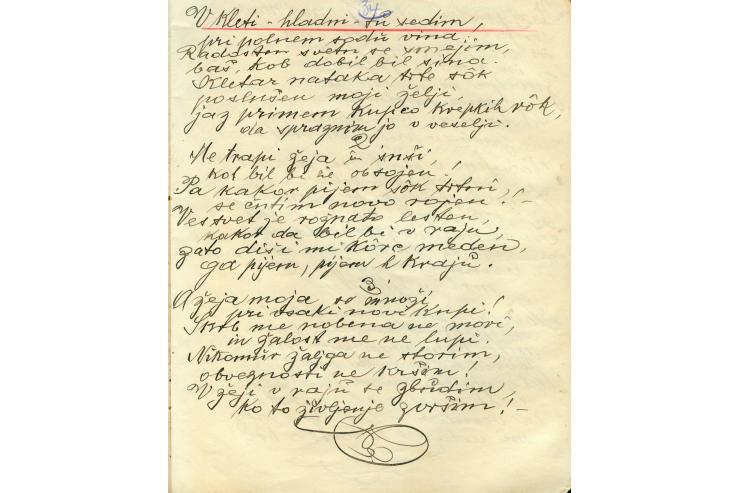 34
V kleti - hladni - tu sedim,
pri polnem sodu vina.
Radosten svetu se smejim,
baš, kob dobil bil sina.
Kletar nataka trte sôk
poslušen moji želji,
jaz primem kupco krepkih rôk,
da spraznim jo v veselji.
2
Me trapi žeja in suši,
kot bil bi že obsojen!
Pa kakor pijem sôk trtni,
se čutim novo rojen! -
Ves svet je rognato lesten,
kakor da bil bi v raju,
zato diši mi kôrc meden,
ga pijem, pijem h kraju.
3
A žeja moja se množi,
pri vsaki novi kupi!
Skrb me nobena ne mori,
in žalost me ne lupi.
Nikomur žalga ne storim,
obveznosti ne kršim!
V žeji v raju se zbudim,
ko to življenje zvršim! -